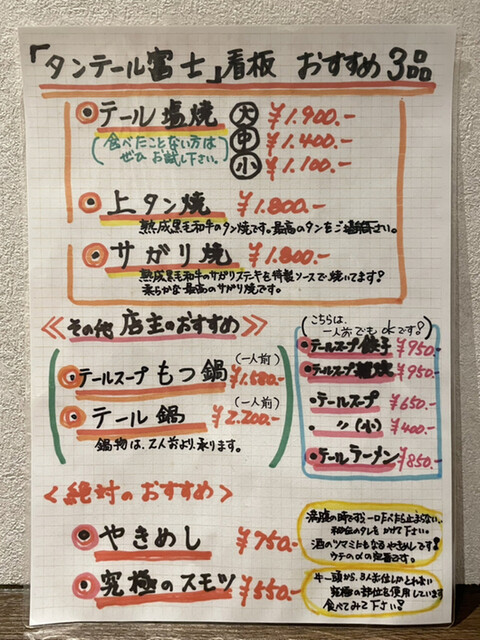 「タンテール富士」看板 おすすめ 3品
テール塩焼 大 ¥1.900.-
(食べたことない方は 中 ¥1.400.-
ぜひお試し下さい。) 小 ¥1.100.-
上タン焼 ¥1.800.-
熟成黒毛和牛のタン焼です。最高のタンをご堪能下さい。
サガリ焼 ¥1.800.-
熟成黒毛和牛のサガリステーキを特製ソースで焼いてます?
柔らかな最高のサガリ焼です。
≪その他 店主のおすすめ≫
テールスープ もつ鍋 (一人前) ¥1.580.-
テール鍋 (一人前) ¥2.200.-
鍋物は、2人前より承ります。
(こちらは、
一人前でもokです?)
テールスープ餃子 ¥950.-
テールスープ雑炊 ¥950.-
・テールスープ ¥650.-
・ 〃 (小) ¥400.-
テールラーメン ¥850.-
<絶対のおすすめ>
やきめし ¥750.-
満腹の時ですら一口たべたら止まらない。
秘伝のタレをかけて下さい。
酒のツマミにもなるやきめしです?
ウチの
の定番です。
究極のスモツ ¥550.-
牛一頭から、
究極の部位を使用しています
食べてみて下さい?